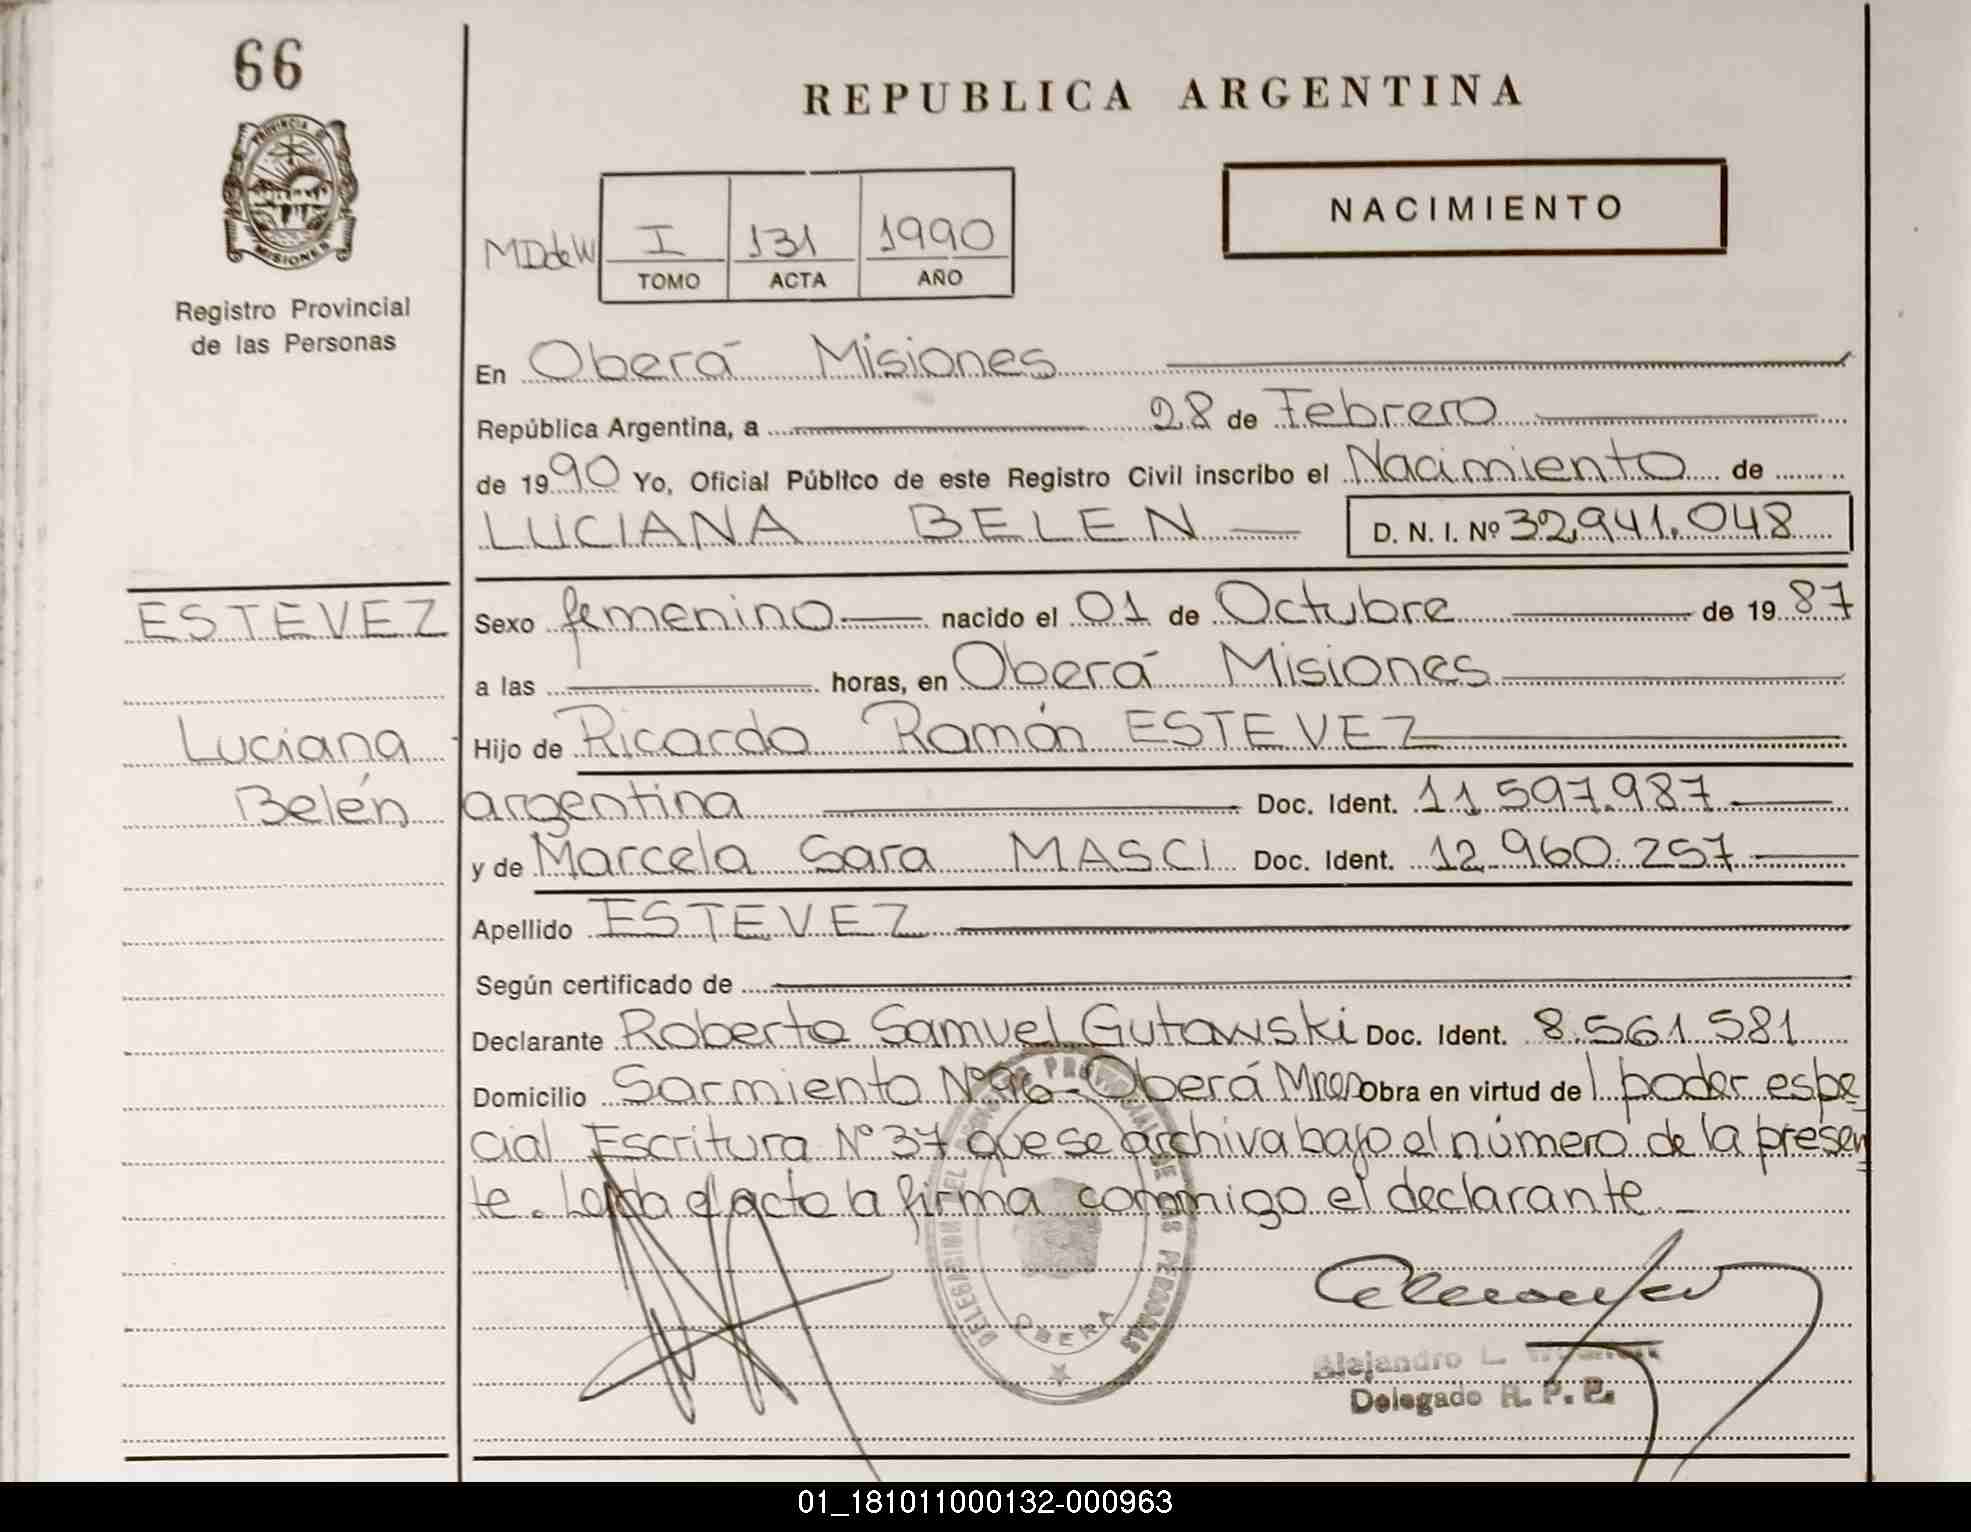 66
REPUBLICA ARGENTINA
PROVINCIA DE
MISIONES
Registro Provincial
de las Personas
NACIMIENTO
MDdeW I 131 1990
TOMO ACTA AÑO
En Oberá Misiones
República Argentina, a 28 de Febrero
de 1990 Yo, Oficial Público de este Registro Civil inscribo el Nacimiento de
LUCIANA BELEN D. N. I. Nº 32.941.048
ESTEVEZ
Luciana
Belén
Sexo femenino nacido el 01 de Octubre de 1987
a las horas, en Oberá Misiones
Hijo de Ricardo Ramón ESTEVEZ
argentina Doc. Ident. 11.597.987
y de Marcela Sara MASCI Doc. Ident. 12.960.257
Apellido ESTEVEZ
Según certificado de
Declarante Roberto Samuel Gutowski Doc. Ident. 8.561.581
Domicilio Sarmiento Nº 96 - Oberá Mnes Obra en virtud de l poder espe
cial Escritura Nº 37 que se archiva bajo el número de la presen
te. Leída el acta la firma conmigo el declarante
DELEGACION DEL REGISTRO PROVINCIAL DE LAS PERSONAS
OBERA
Alejandro L.
Delegado R. P. P.
01_181011000132-000963